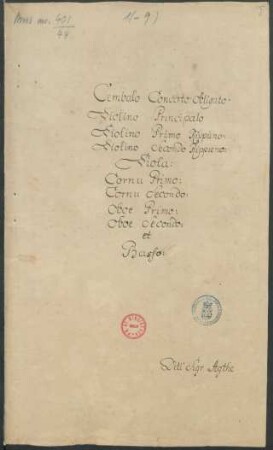 Mus. ms. 431/48
1(-9)
Cembalo Concerto Alligato:
Violino Principalo
Violino Primo Rippieno:
Violino Secondo Rippieno:
Viola:
Cornu Primo:
Cornu Secondo:
Oboe Primo:
Oboe Secondo:
et
Basso:
Dell Sigr. Agthe